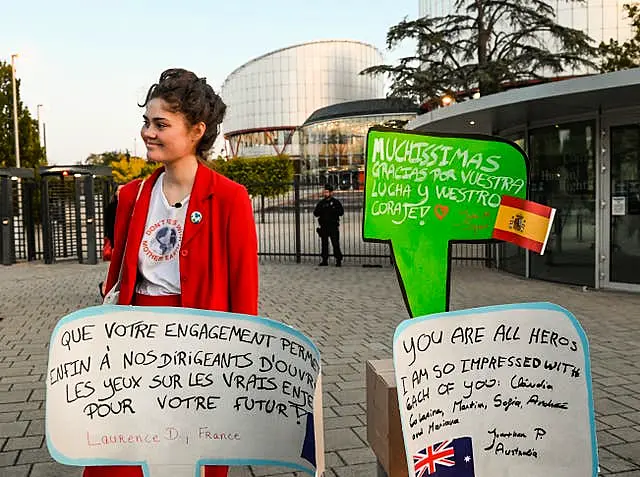 MUCHISSIMAS
GRACIAS POR VUESTRA
LUCHA Y WESTRO
CORAJE!
DON'T
MOTHER
QUE VOTRE ENGAGEMENT PERME
ENFIN À NOS DIRIGEANTS D'OUV
LES YEUX SUR LES VRAIS ENJE
POUR VOTRE FUTUR!
Laurence D., France
YOU ARE ALL HEROS
I AM SO IMPRESSED WITH
EACH OF YOU: Cláudia
Catarina, Martim, Sofia, André
and Mariana
Jonathan P.
Australia